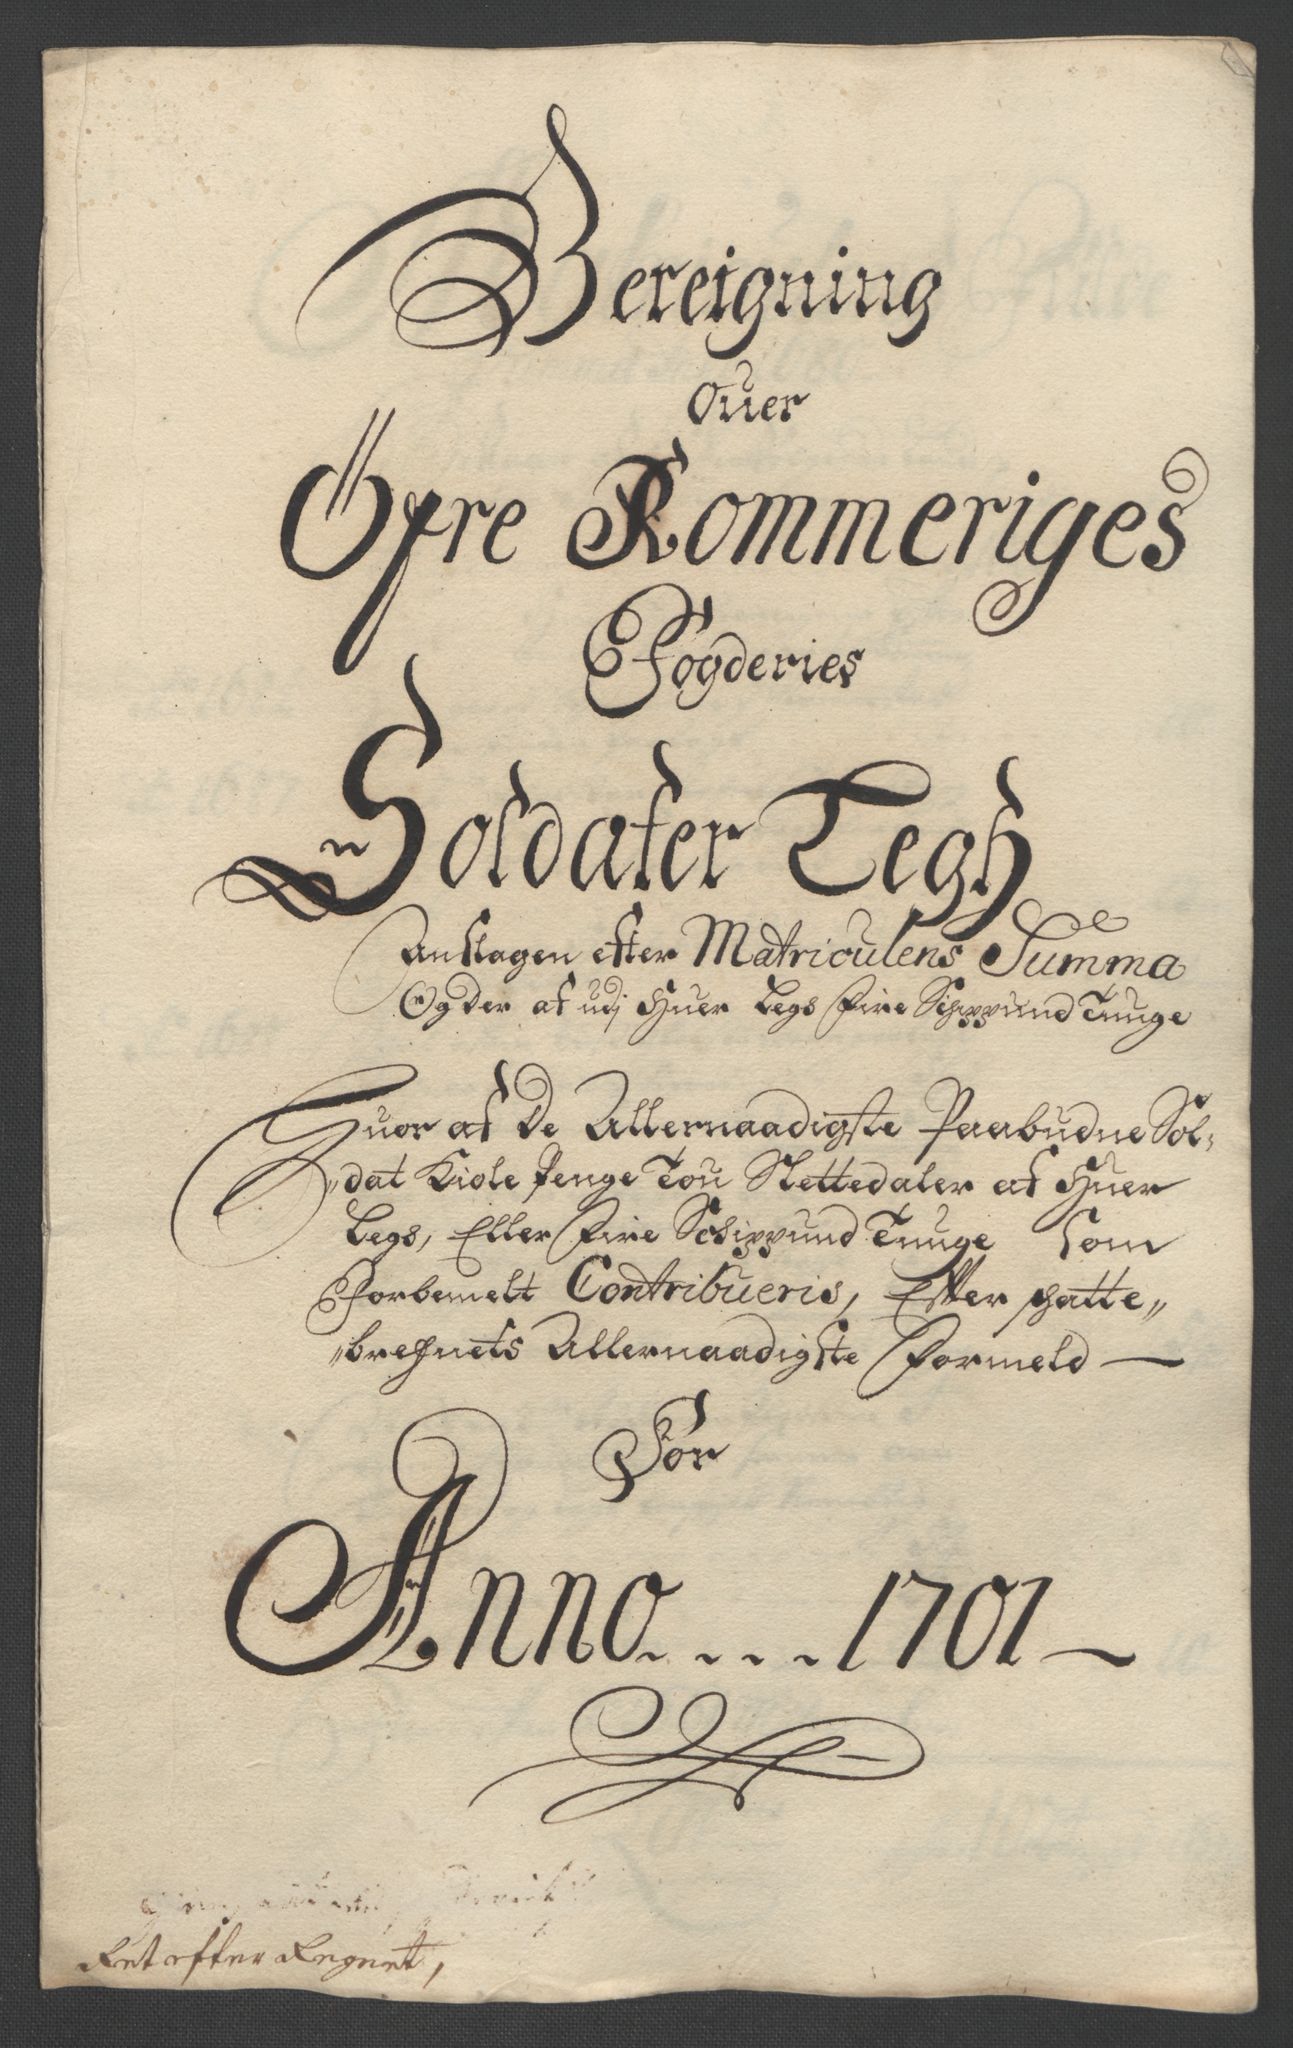 Bereigning
Ouer
Öfre Rommeriges
Fogderies
Soldater Legh
Anslagen efter Matriculens Summa
Og Der af udj Huer Legs Fire Schippund Tunge
Huor af De Allernaadigste Paabudne Sol„
„dat Kiole Penge Tou Slettedaler af Huer
Legs, Eller Fire Schippund Tunge Som
Forbemelt Contribueris, Efter Schatte„
„brefuets Allernaadigste Formeld —
For
Anno....1701—
Ret efter Regnet,